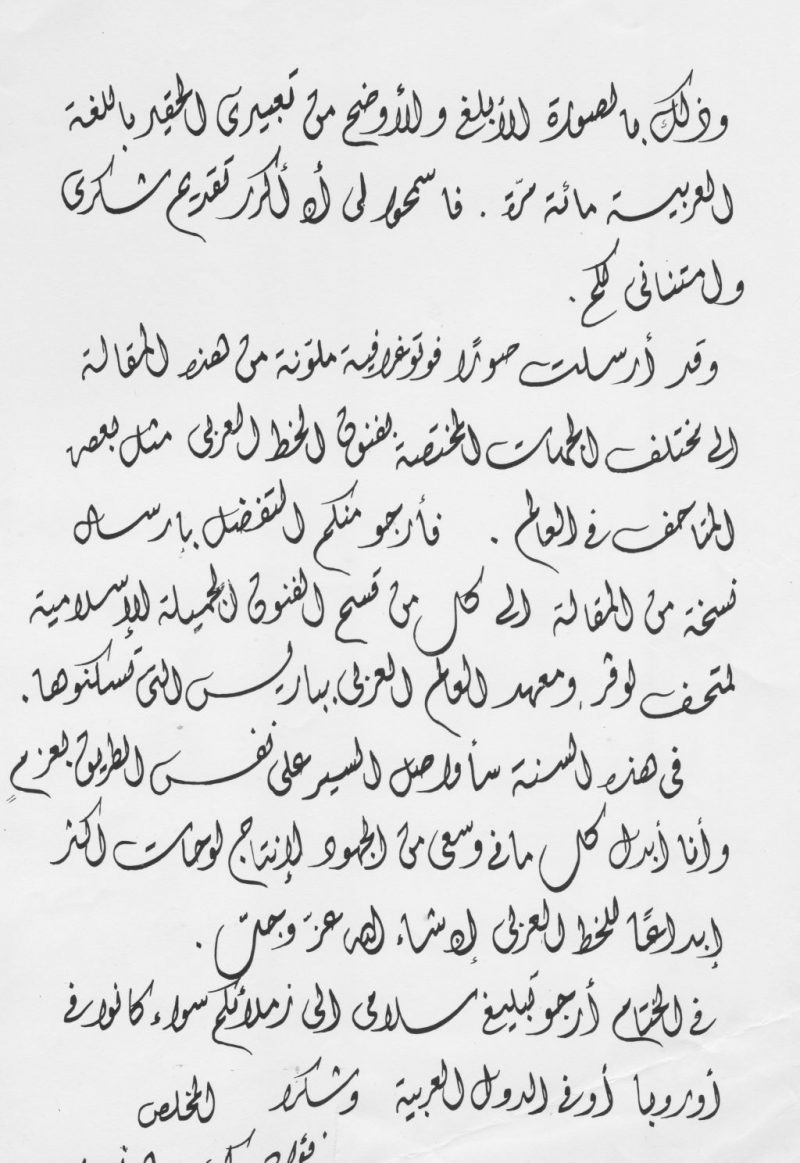 وذلك بالصورة الأبلغ والأوضح من تعبيرى الحقير باللغة
العربية مائة مرّة . فاسمحوا لى أن أكرر تقديم شكرى
وامتنانى لكم .
وقد أرسلت صورًا فوتوغرافية ملوّنة من هذه المقالة
الى مختلف الجهات المختصة بفنون الخط العربى مثل بعض
المتاحف فى العالم . فأرجو منكم التفضل بإرسال
نسخة من المقالة الى كل من قسم الفنون الجميلة الإسلامية
لمتحف لوڤر ومعهد العالم العربى بباريس التى تسكنوها .
فى هذه السنة سأواصل السير على نفس الطريق بعزمٍ
وأنا أبدل كل ما فى وسعى من الجهود لإنتاج لوحات اكثر
إبداعًا للخط العربى إن شاء الله عزّ وجلّ .
فى الختام أرجو تبليغ سلامى الى زملائكم سواء كانوا فى
أوروبا أو فى الدول العربية وشكرا المخلص
فؤاد